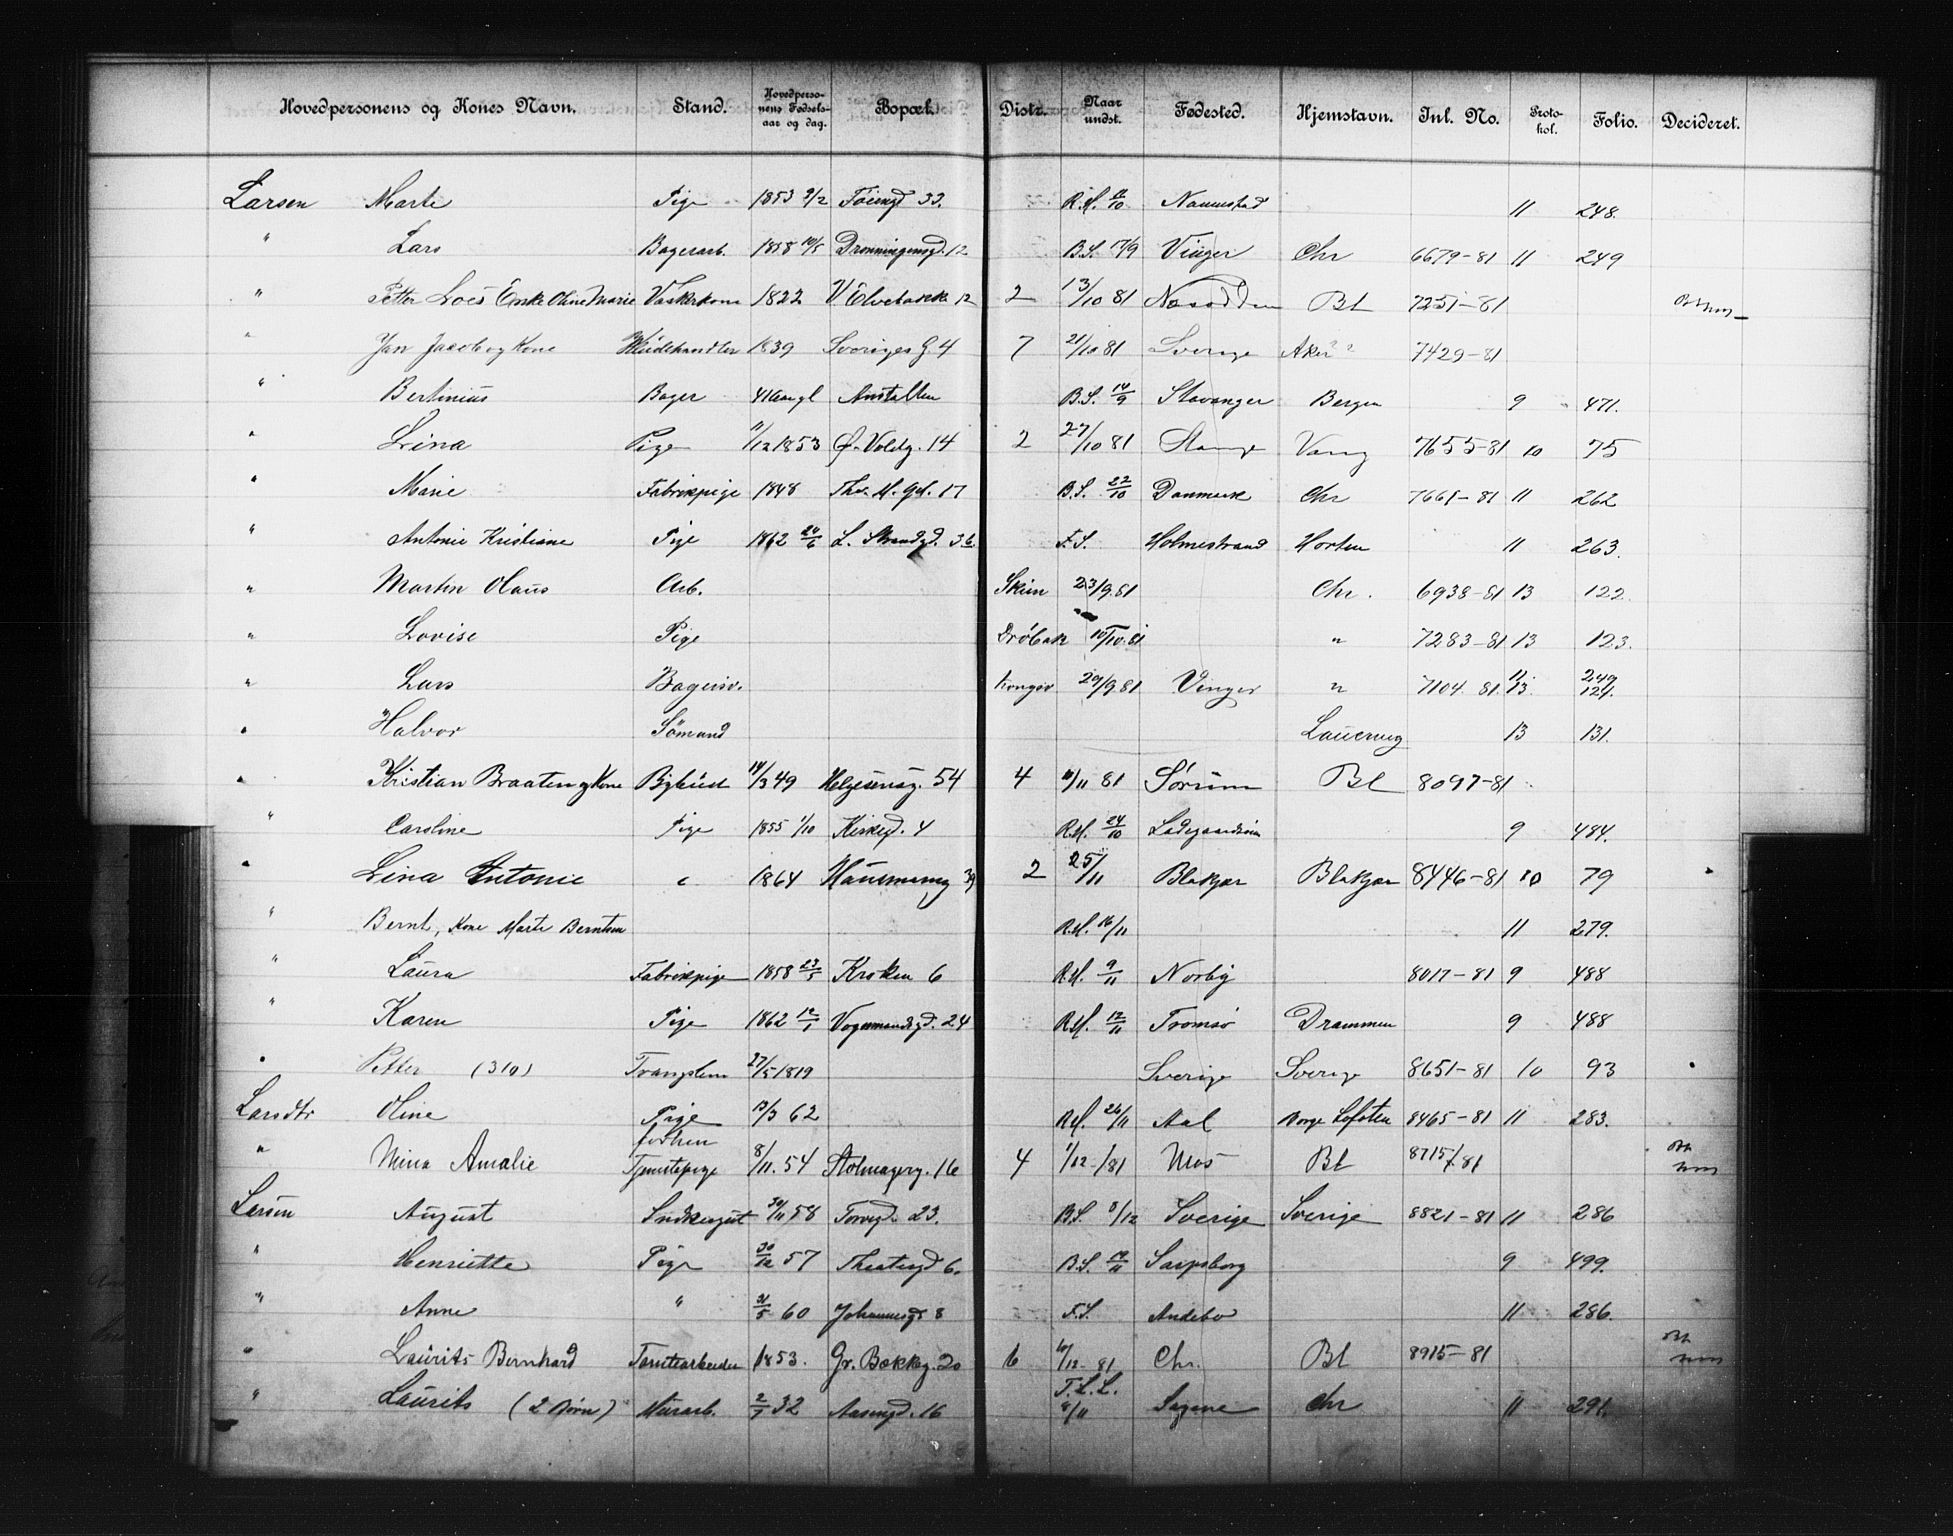 Hovedpersonens og Kones Navn. Stand. Hovedperso-nens Fødsels-aar og dag. Bopæl. Distr. Naar undst. Fødested. Hjemstavn. Inl. No. Proto-kol. Folio. Decideret.
Larsen Marte Pige 1853 9/2 Tøiengd 33. R.H. Nannestad 11 248.
" Lars Bagerarb. 1858 10/5 Dronningensgd. 12 B.S. 17/9 Vinger Chr 6679-81 11 249
" Petter Loes Enke Oline Marie Vaskerkone 1822 V. Elvebakk 12 2 13/10 81 Nesodden Bl 7251-81
" Jan Jacob og Kone Kludehandler 1839 Sveriges G. 4 7 21/10 81 Sverige Aker? 7429-81
" Bertinius Bager 41 aar gl Anstalten B.S. 14/9 Stavanger Bergen 9 471.
" Lina Pige 11/12 1853 Ø. Voldg. 14 2 27/10 81 Stange Vang 7655-81 10 75
" Marie Fabrikpige 1848 Th. M. gd. 17 B.S. 22/10 Danmark Chr 7661-81 11 262
" Antonie Kristiane Pige 1862 24/6 L. Strandgd. 36. F.S. Holmestrand Horten 11 263.
" Martin Olaus Arb. Skien 23/9.81 Chr. 6938-81 13 122.
" Lovise Pige Drøbak 10/10.81 " 7283-81 13 123.
" Lars Bagersv. Kongsv 29/9.81 Vinger " 7104 81. 11 13. 249 124.
" Halvor Sømand Laurvig 13 131.
" Kristian Braaten og Kone Bybud 14/3 49 Helgesensg. 54 4 11/11 81 Sørum Bl 8097-81
" Caroline Pige 1855 1/10 Kirkegd. 4 R.H. 24/10 Ladegaardsøen 9 484.
" Lina Antonie " 1864 Hausmansg 39 2 25/11 Blakjær Blakjær 8446-81 10 79
" Bernt, Kone Marte Berntsen R.H. 16/11 11 279.
" Laura Fabrikpige 1858 23/5 Kroken 6 R.H. 9/11 Norby 8017-81 9 488
" Karen Pige 1862 12/1 Vognmandsgd. 24 R.H. 12/11 Tromsø Drammen 9 488
" Petter (310) Tvangslem 27/5 1819 Sverige Sverige 8651-81 10 93
Larsdtr Oline Pige 13/3 62 R.H. 26/11 Aal Borge Lofoten 8465-81 11 283.
" Mina Amalie forhen Tjenstepige 8/11. 54 Stolmagerg. 16 4 1/12 /81 Mos Bl 8715/81
Larsen August Snedkersvent 30/11 58 Torvgd. 23. B.S. 8/12 Sverige Sverige 8821-81 11 286
" Henriette Pige 30/12 57 Theatergd 6. B.S. 19/11 Sarpsborg 9 499.
" Anne " 31/5 60 Johannesgd 8 F.S. Andebo 11 286.
" Laurits Bernhard Tomtearbeider 1853. Gr. Bækkeg. 20 6 6/12 81 Chr. Bl 8915-81
" Laurits (2 Børn) Murarb. 2/7 32 Aasengd. 16 T.L.L. 8/11 Sagene Chr 11 291.